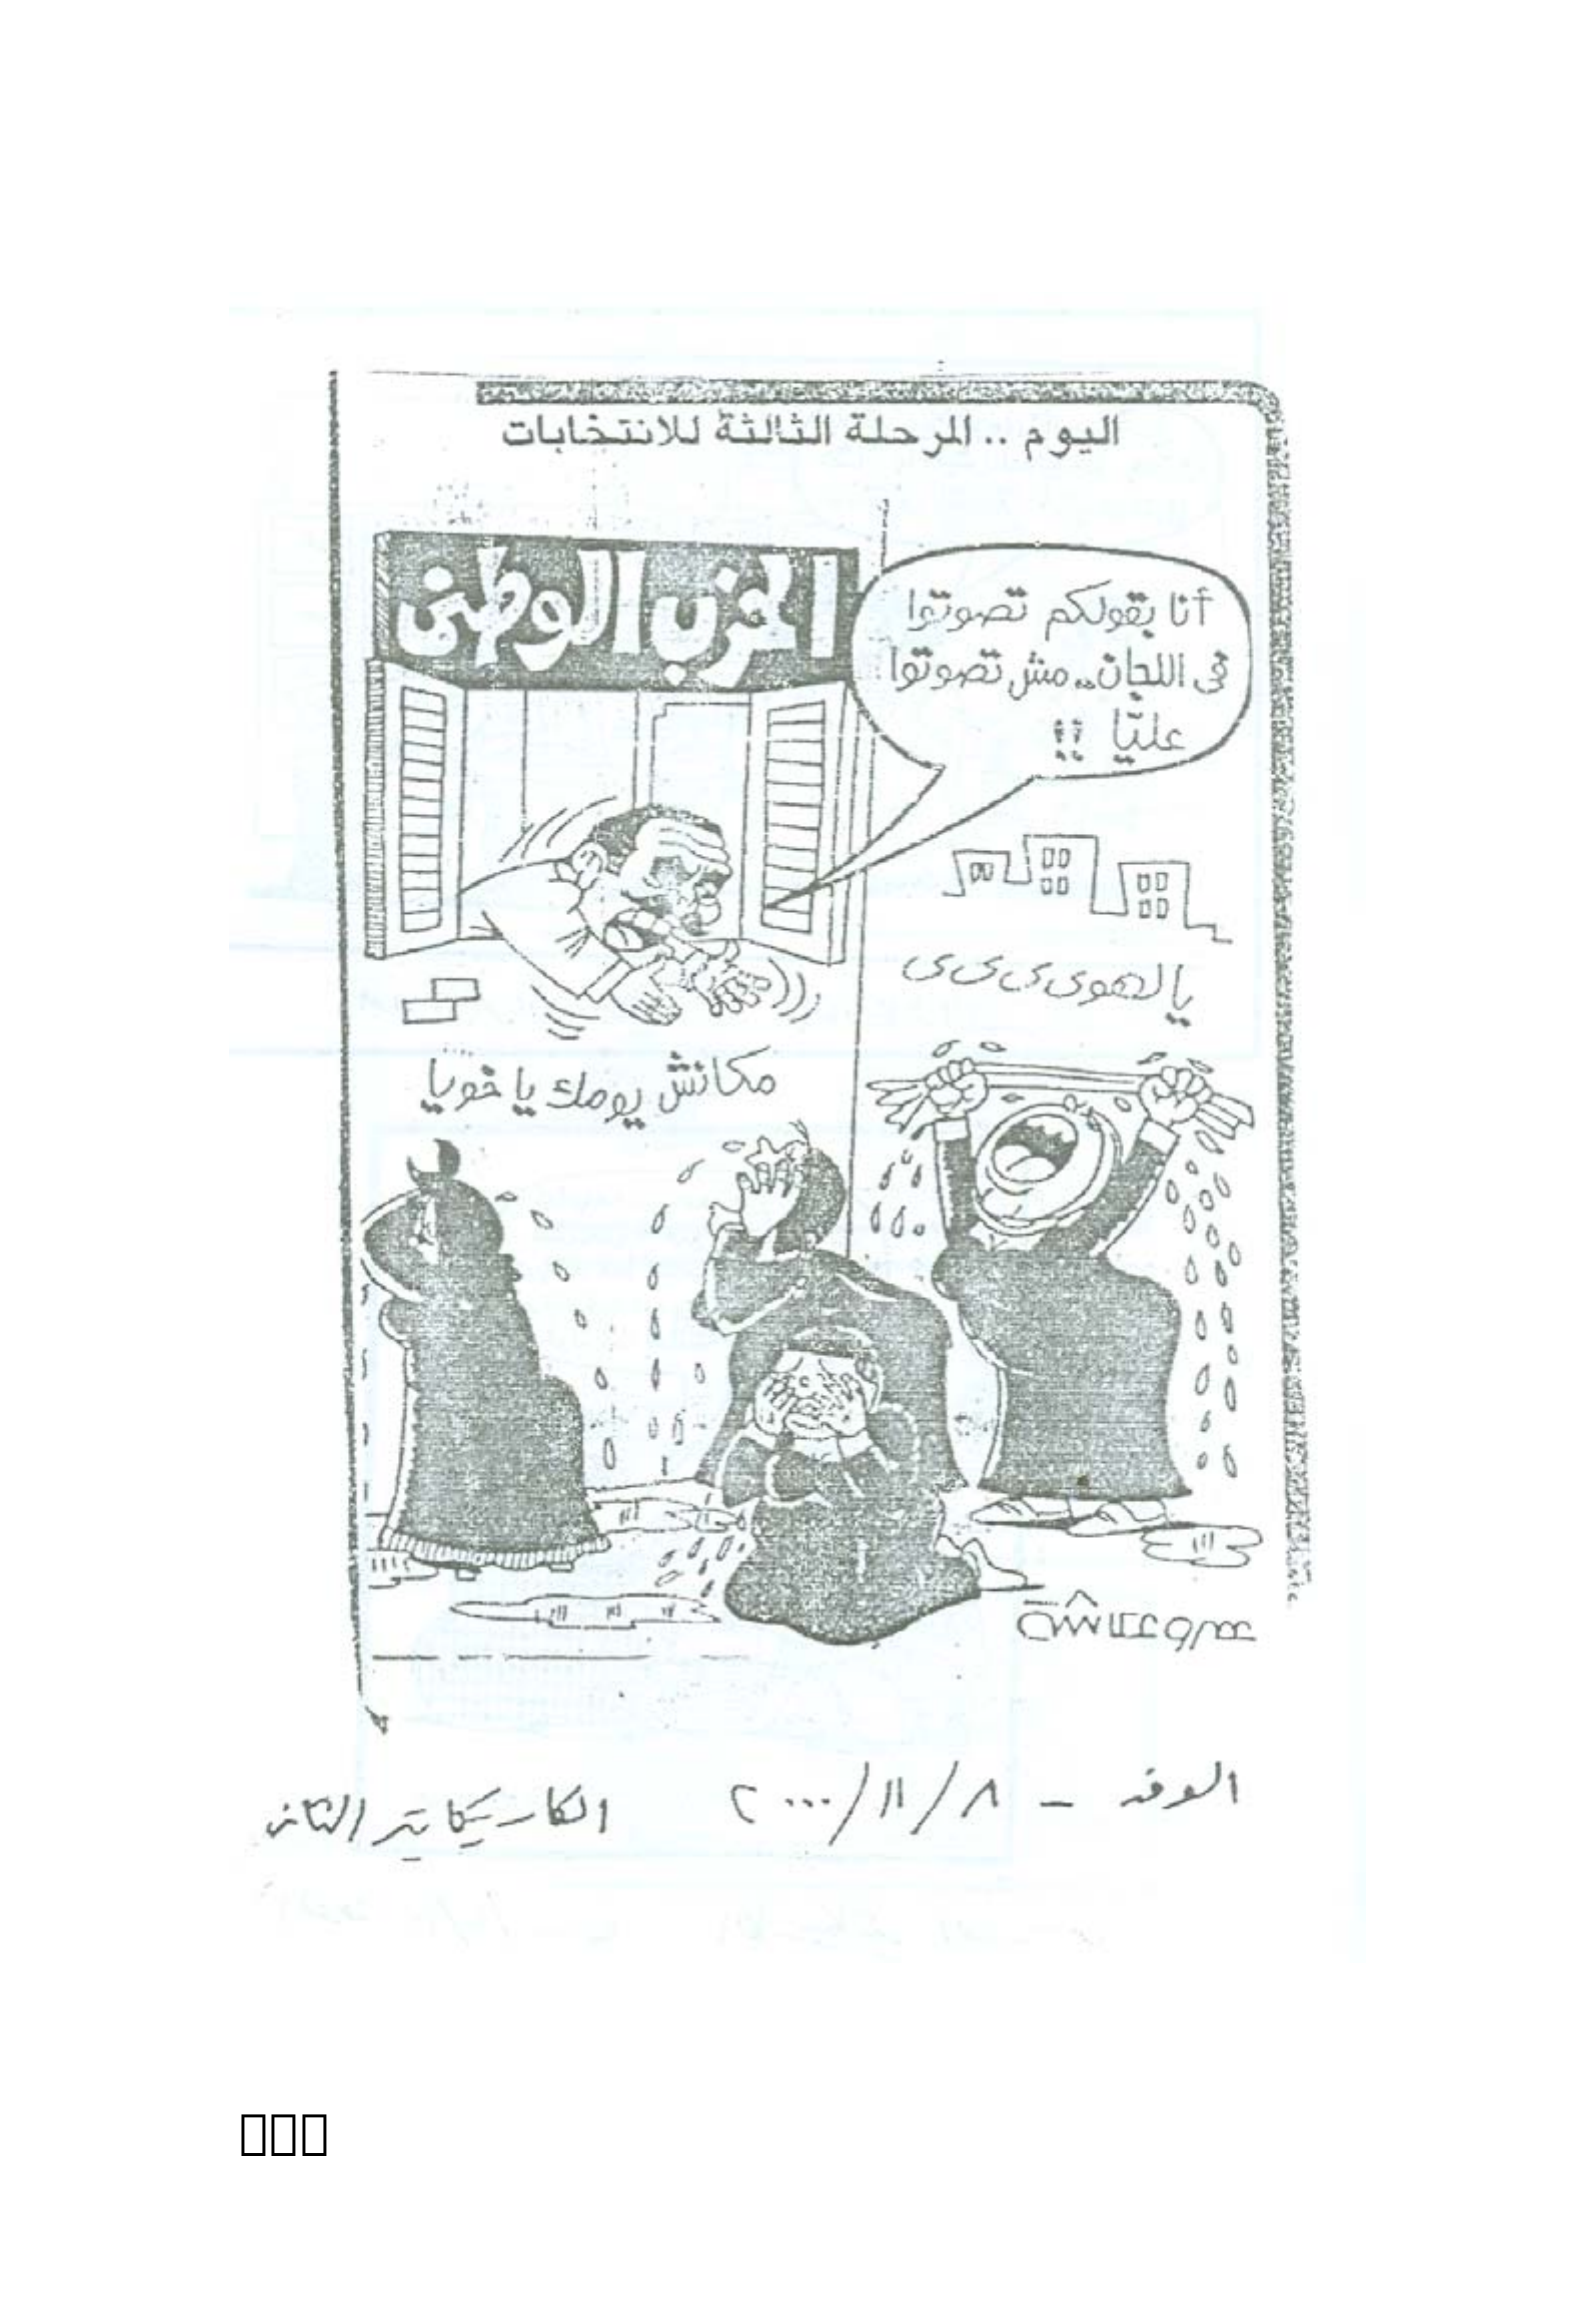 اليوم .. المرحلة الثالثة للانتخابات
الحزب الوطنى
أنا بقولكم تصوتوا
فى اللجان .. مش تصوتوا
عليّا !!
يا لهوى ى ى ى
مكانش يومك يا خويا
عمرو عكاشة
الوفد - ٨/١١/٢٠٠٠
الكاريكاتير الثانى